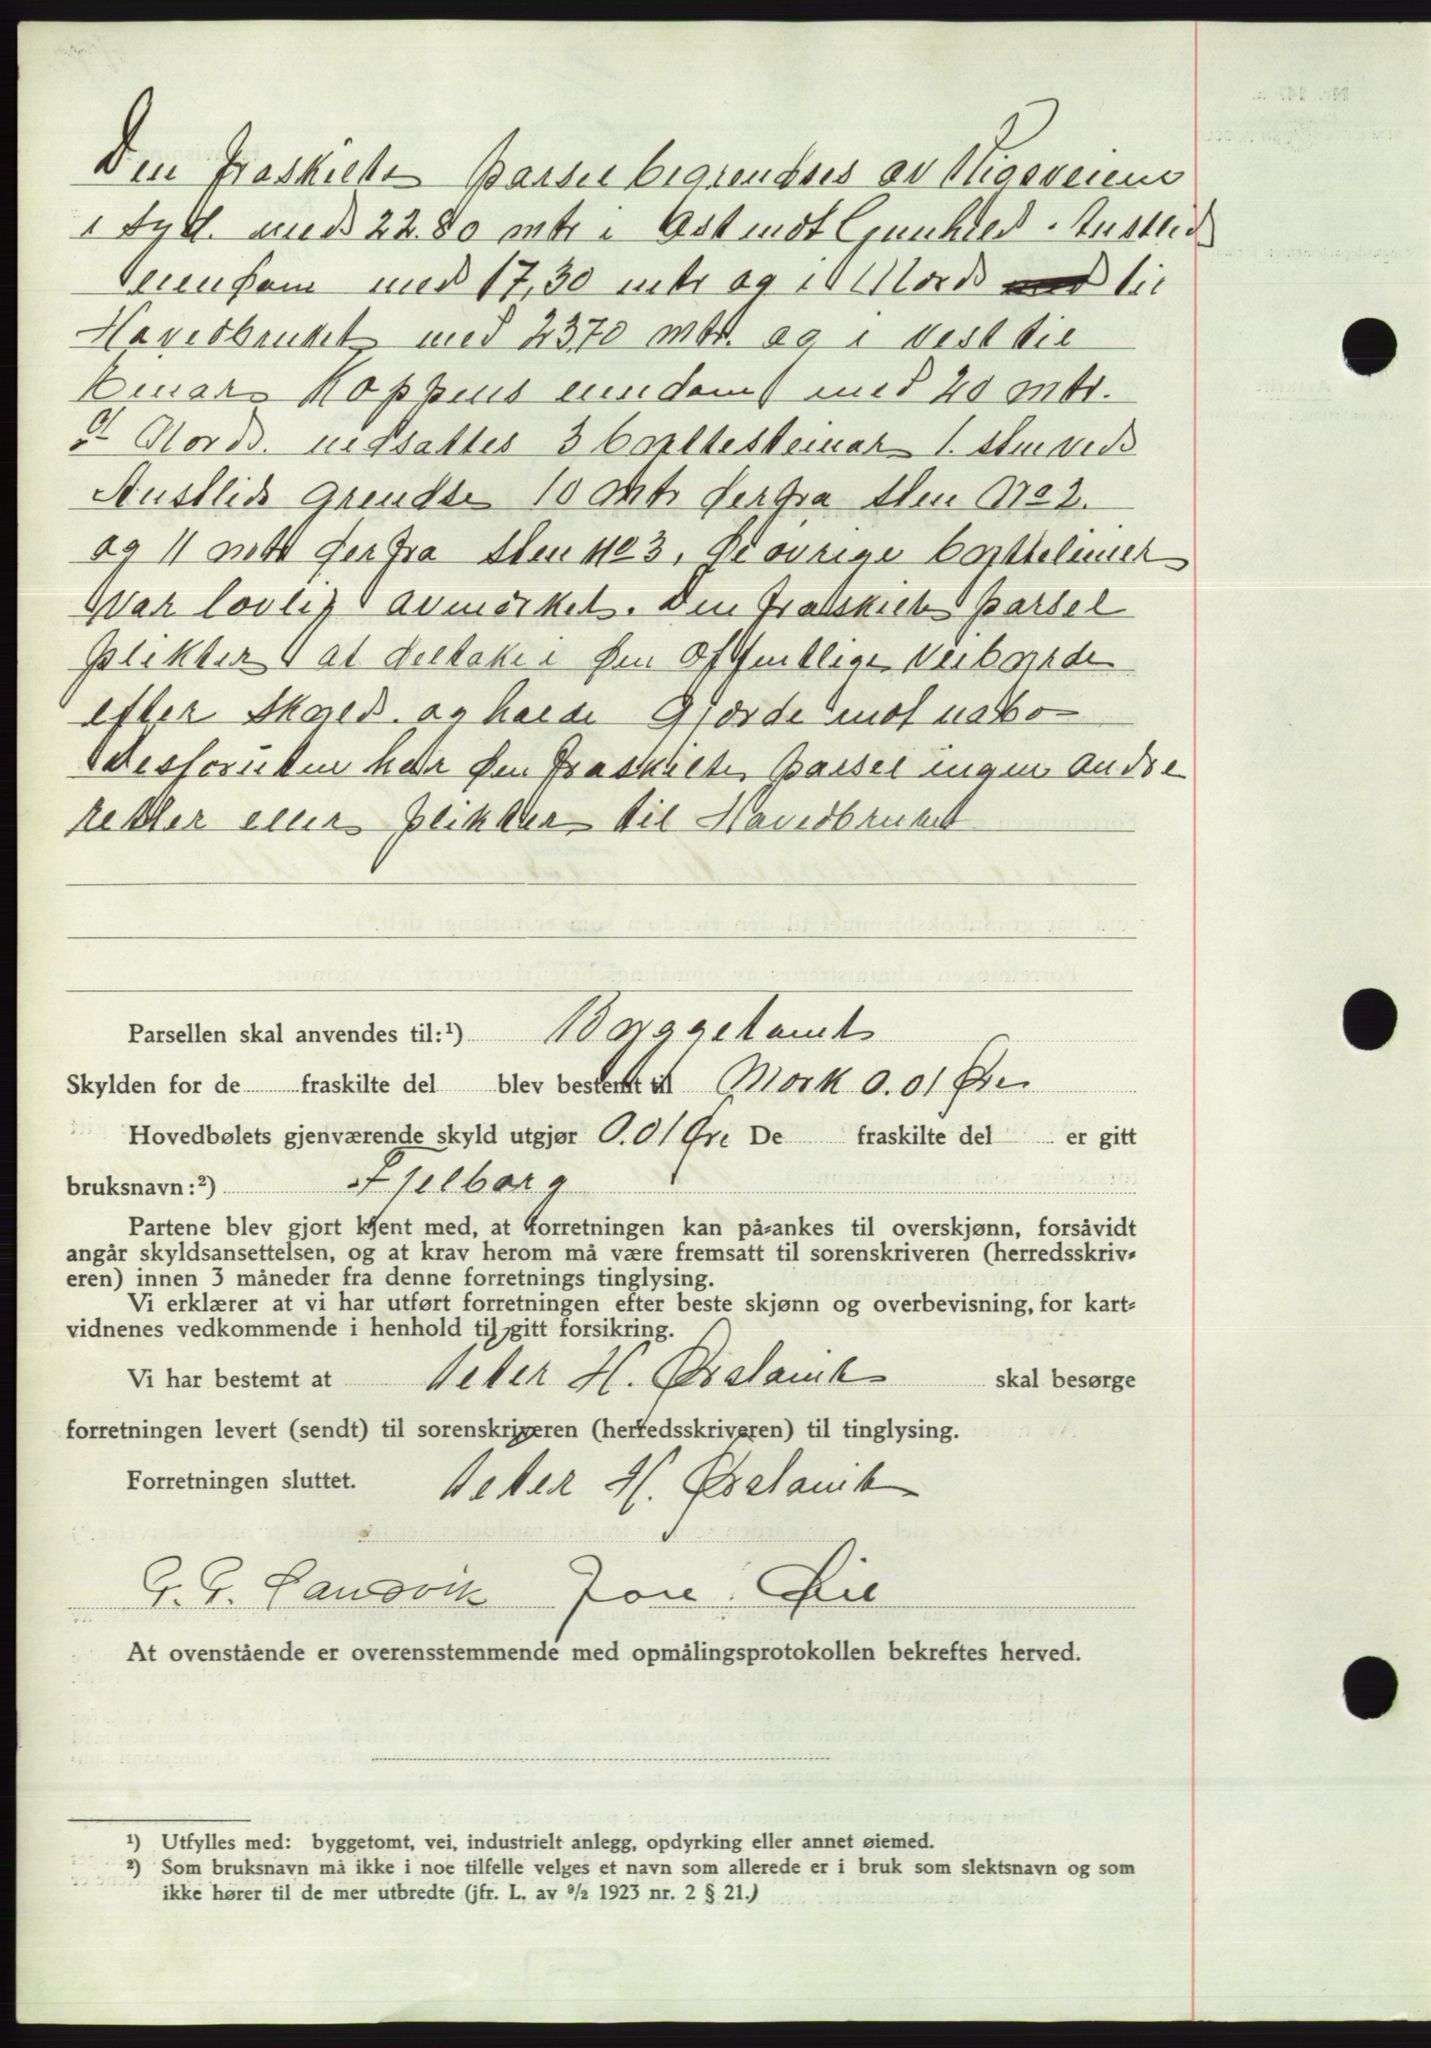 Den fraskilte parsel begrendses av Rigsveien
i Syd. med 22.80 mtr i Øst mot Gunhild Austlid
eiendom med 17,30 mtr og i Nord til
Hovedbruket med 23.70 mtr. og i vest til
Einar Koppens eiendom med 20 mtr.
I Nord. nedsattes 3 byttesteinar 1. sten ved
Austlids grendse 10 mtr derfra sten No 2.
og 11 mtr derfra sten No 3, de øvrige byttelinier
var lovlig avmerket. Den fraskilte parsel
plikter at deltake i den offentlige veibyrde
efter skyld. og holde gjærde mot nabo
Desforuten har den fraskilte parsel ingen andre
retter eller plikter til Hovedbruket
Parsellen skal anvendes til:¹) Byggetomt
Skylden for de fraskilte del blev bestemt til Mork 0.01 Øre
Hovedbølets gjenværende skyld utgjør 0.01 Øre De fraskilte del er gitt
bruksnavn:²) Fjelborg
Partene blev gjort kjent med, at forretningen kan på-ankes til overskjønn, forsåvidt
angår skyldsansettelsen, og at krav herom må være fremsatt til sorenskriveren (herredsskriv-
eren) innen 3 måneder fra denne forretnings tinglysing.
Vi erklærer at vi har utført forretningen efter beste skjønn og overbevisning, for kart-
vidnenes vedkommende i henhold til gitt forsikring.
Vi har bestemt at Peter H. Ørstavik skal besørge
forretningen levert (sendt) til sorenskriveren (herredsskriveren) til tinglysing.
Forretningen sluttet. Peter H. Ørstavik
G. G. Sandvik Jone Øie
At ovenstående er overensstemmende med opmålingsprotokollen bekreftes herved.
¹) Utfylles med: byggetomt, vei, industrielt anlegg, opdyrking eller annet øiemed.
²) Som bruksnavn må ikke i noe tilfelle velges et navn som allerede er i bruk som slektsnavn og som
ikke hører til de mer utbredte (jfr. L. av ⁹/₂ 1923 nr. 2 § 21.)